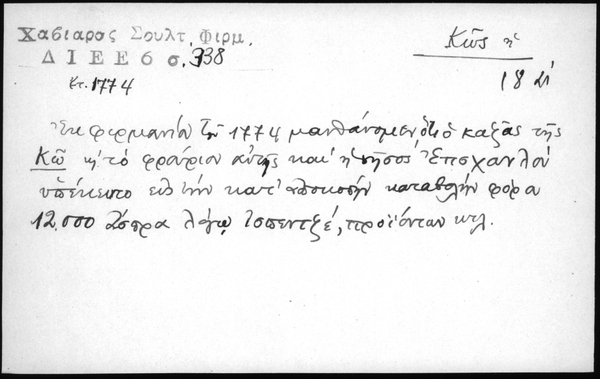 Χαβιαρας Σουλτ. Φιρμ.
ΔΙΕΕ6 σ. 338
Κῶς ἡ
ἔτ. 1774
18
Ἐκ φιρμανίου τοῦ 1774 μανθάνομεν ὅτι ὁ καζᾶς τῆς
Κῶ ἡ τὸ φρούριον αὐτῆς καὶ ἡ νῆσος
ὑπέκειτο εἰς τὴν κατ' ἀποκοπὴν καταβολὴν φόρα
12.000 ἄσπρα λόγῳ Ἰσπεντζέ, προϊόντων κτλ.